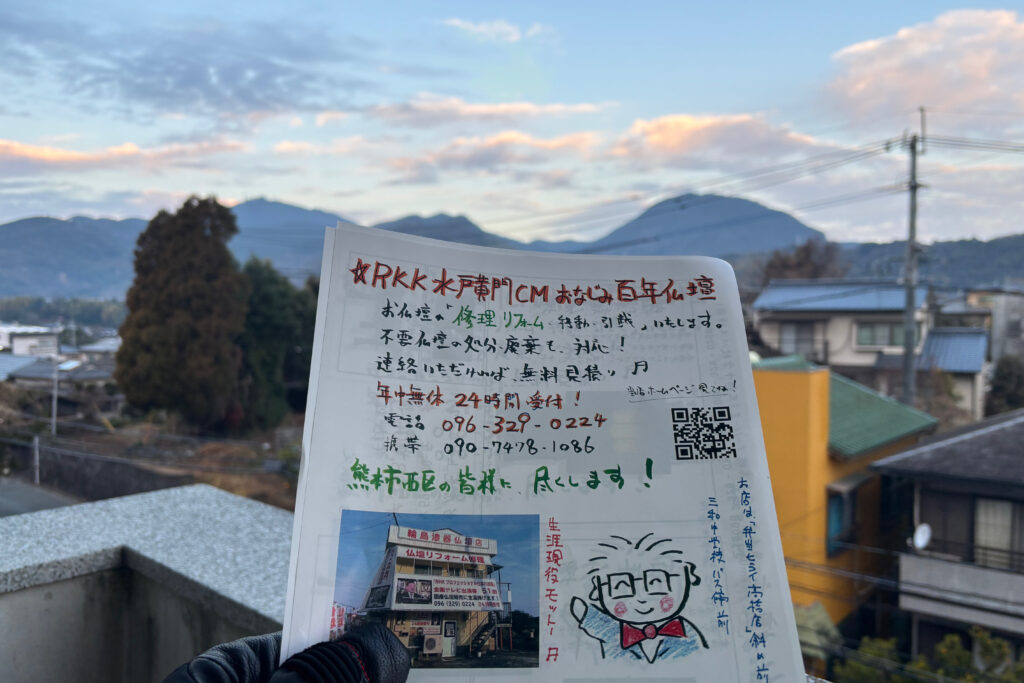 ☆RKK 水戸黄門CM おなじみ百年仏壇
お仏壇の「修理 リフォーム 移動・引越」いたします。
不要仏壇の処分・廃棄も、対応！
連絡いただければ、無料見積り
年中無休 24時間受付！
当店ホームページ見てね！
電話 096-329-0224
携帯 090-7478-1086
熊本市西区の皆様に、尽くします！
輪島漆器仏壇店
仏壇リフォーム修理
096(329)0224
生涯現役モットー
お店は、「弁当ヒライ高橋店」斜め前
三和中学校バス停前